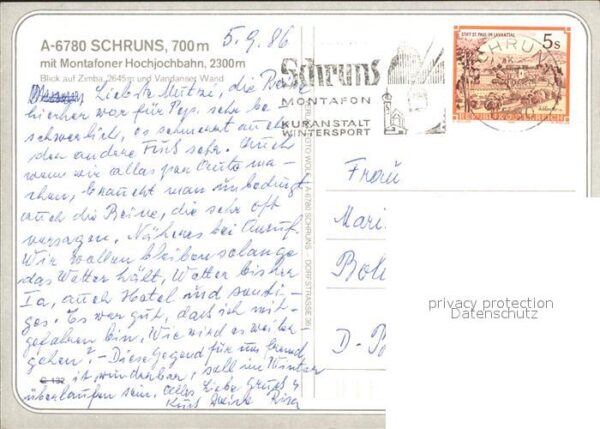 A-6780 SCHRUNS, 700m
mit Montafoner Hochjochbahn, 2300m
Blick auf Zimba, 2645m und Vandanser Wand
5.9.86
Liebste Mutzi, die Reise
hierher war für Pepi sehr be
schwerlich, es schmerzt auch
der andere Fuß sehr. Auch
wenn wir alles per Auto ma-
chen, braucht man unbedingt
auch die Beine, die sehr oft
versagen. Näheres bei Anruf.
Wir wollen bleiben solange
das Wetter hält, Wetter bisher
Ia, auch Hotel und sonsti-
ges. Es war gut, daß ich mit-
gefahren bin. Wie wird es weiter
gehen? - Diese Gegend für uns fremd
ist wunderbar, soll im Winter
überlaufen sein. Alles Liebe Gruß
C 132
Schruns
MONTAFON
KURANSTALT
WINTERSPORT
STIFT ST. PAUL IM LAVANTTAL
5s
REPUBLIK ÖSTERREICH
SCHRUNS
FOTO WOLF, A-6780 SCHRUNS, DORFSTRASSE
Frau
Mari
D-
privacy protection
Datenschutz